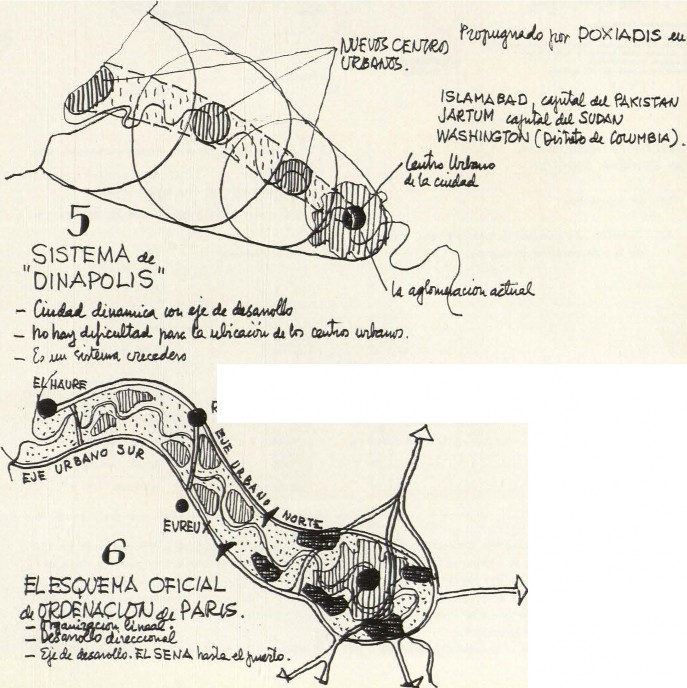 NUEVOS CENTRO
URBANOS.
Propugnado por DOXIADIS en
ISLAMABAD, capital del PAKISTAN
JARTUM capital del SUDAN
WASHINGTON (Distrito de COLUMBIA).
Centro Urbano
de la ciudad
La aglomeracion actual
5
SISTEMA de
"DINAPOLIS"
- Ciudad dinamica con eje de desarollo
- No hay dificultad para la ubicación de los centros urbanos.
- Es un sistema crecedero
EL HAURE
R
EJE URBANO SUR
EJE URBANO NORTE
EVREUX
6
EL ESQUEMA OFICIAL
de ORDENACION de PARIS.
- Organizacion lineal.
- Desarollo direccional
- Eje de desarollo. EL SENA hasta el puerto.